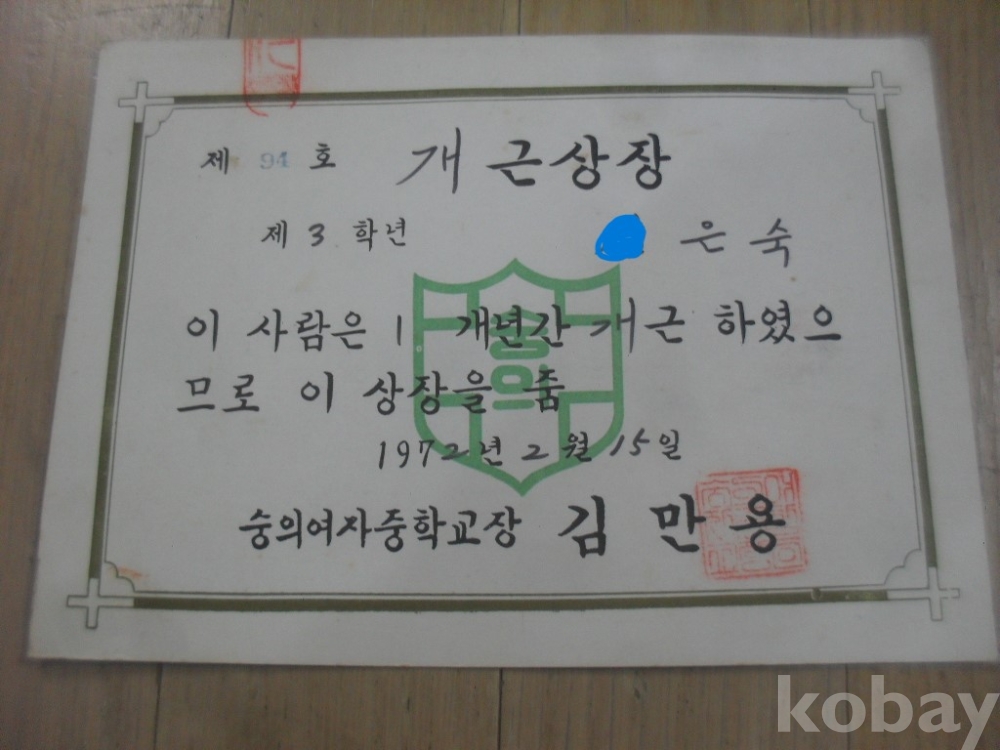 제 94 호 개근상장
제 3 학년 은 숙
이 사람은 1 개년간 개근 하였으
므로 이 상장을 줌
숭의
1972년 2월 15일
숭의여자중학교장 김 만 용
kobay